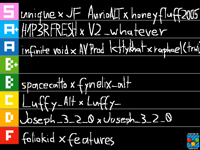 S unique x JF AurioALT x honeyfluff2005
A+ HYP3RFR3SH x V2_whatever
A infinite void x AVProd x raphael(tru)
B+
B spacecatto x fynelix_alt
C Luffy_Alt x Luffy_
D Joseph_3_2_0 x Joseph_3_2_0
F foliokid x features